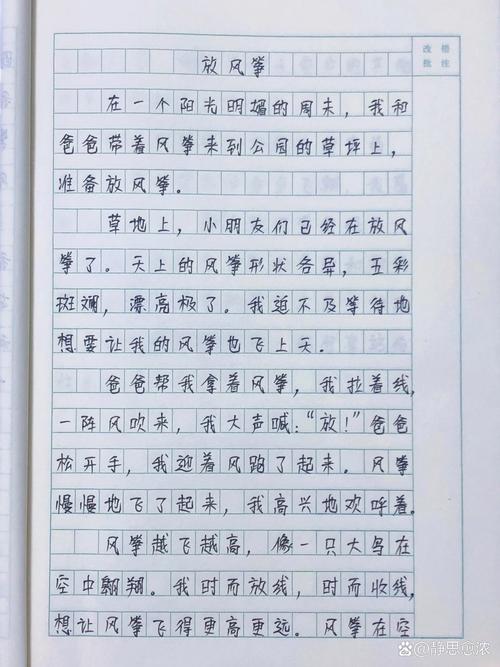 放风筝
改错
批注
在一个阳光明媚的周末，我和
爸爸带着风筝来到公园的草坪上，
准备放风筝。
草地上，小朋友们已经在放风
筝了。天上的风筝形状各异，五彩
斑斓，漂亮极了。我迫不及等待地
想要让我的风筝也飞上天。
爸爸帮我拿着风筝，我拉着线，
一阵风吹来，我大声喊：“放！”爸爸
松开手，我迎着风跑了起来。风筝
慢慢地飞了起来，我高兴地欢呼着。
风筝越飞越高，像一只大鸟在
空中翱翔。我时而放线，时而收线，
想让风筝飞得更高更远。风筝在空
@静思愈浓